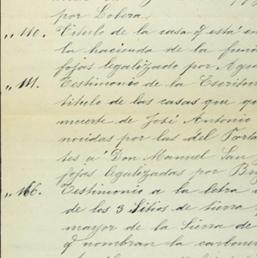 por Lotera.
,, 110. Titulo de la casa q está en
la hacienda de la
fojas legalizado por Agu
,, 111. Testimonio de la Escritur
titulo de las casas que qu
muerte de José Antonio
nocidas por las del Porta
tes a Don Manuel San
fojas legalizadas por
,, 166. Testimonio a la letra
de los 3 Sitios de tierra
mayor de la Sierra de
q nombran la carbone